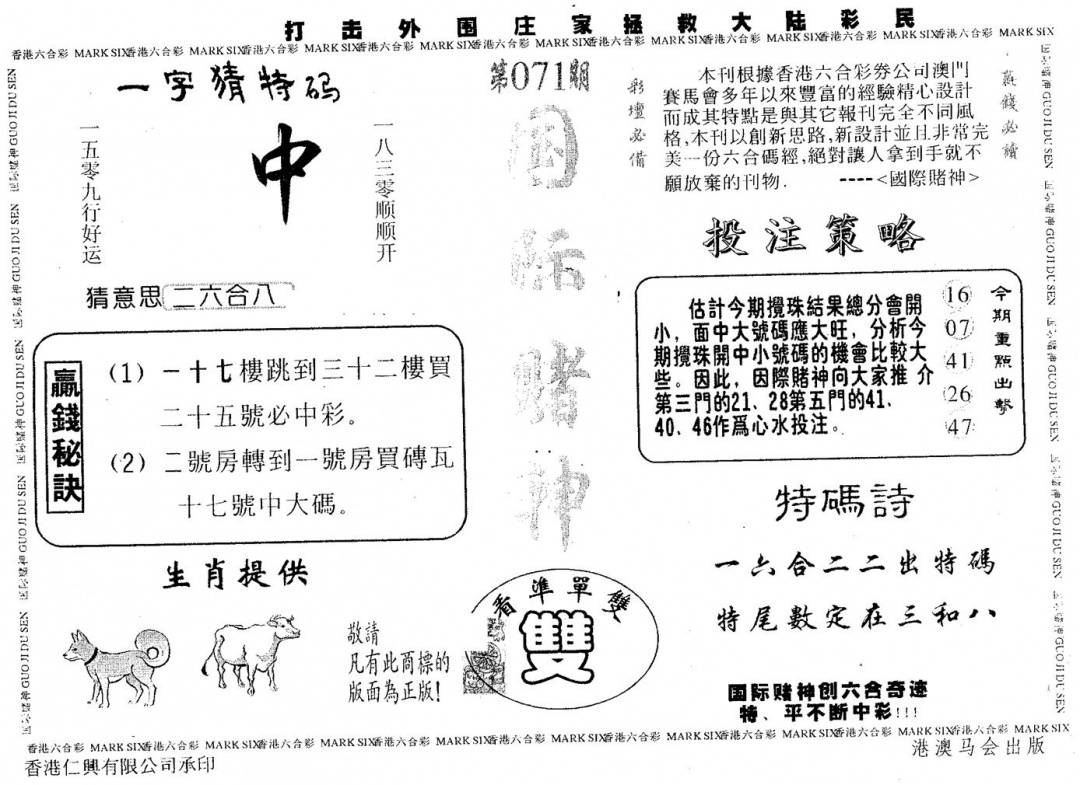 打击外围庄家拯救大陆彩民
香港六合彩 MARK SIX香港六合彩 MARK SIX香港六合彩 MARK SIX香港六合彩 MARK SIX香港六合彩 MARK SIX香港六合彩 MARK SIX香港六合彩 MARK SIX香港六合彩 MARK SIX香港六合彩 MARK SIX
一字猜特码
一五零九行好运
中
一八三零顺顺开
猜意思二六合八
贏錢秘訣
(1) 一十七樓跳到三十二樓買
二十五號必中彩。
(2) 二號房轉到一號房買磚瓦
十七號中大碼。
生肖提供
敬請
凡有此商標的
版面為正版!
第071期
国际赌神
看準單雙
雙
彩壇必備
本刊根據香港六合彩券公司澳門
賽馬會多年以來豐富的經驗精心設計
而成其特點是與其它報刊完全不同風
格,本刊以創新思路,新設計並且非常完
美一份六合碼經,絕對讓人拿到手就不
願放棄的刊物. ----<國際賭神>
贏錢必讀
投注策略
估計今期攪珠結果總分會開
小，面中大號碼應大旺，分析今
期攪珠開中小號碼的機會比較大
些。因此，因際賭神向大家推 介
第三門的21、28第五門的41、
40、46作爲心水投注。
16
07
41
26
47
今期重點出擊
特碼詩
一六合二二出特碼
特尾數定在三和八
国际赌神创六合奇迹
特、平不断中彩!!!
香港六合彩 MARK SIX香港六合彩 MARK SIX香港六合彩 MARK SIX香港六合彩 MARK SIX香港六合彩 MARK SIX香港六合彩 MARK SIX香港六合彩 MARK SIX香港六合彩 MARK SIX香港六合彩 MARK SIX
香港仁興有限公司承印
港澳马会出版